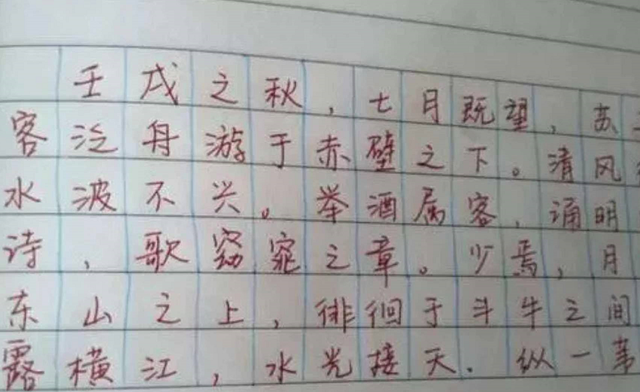 壬戌之秋，七月既望，苏
客泛舟游于赤壁之下。清风
水波不兴。举酒属客，诵明
诗，歌窈窕之章。少焉，月
东山之上，徘徊于斗牛之间
露横江，水光接天。纵一苇